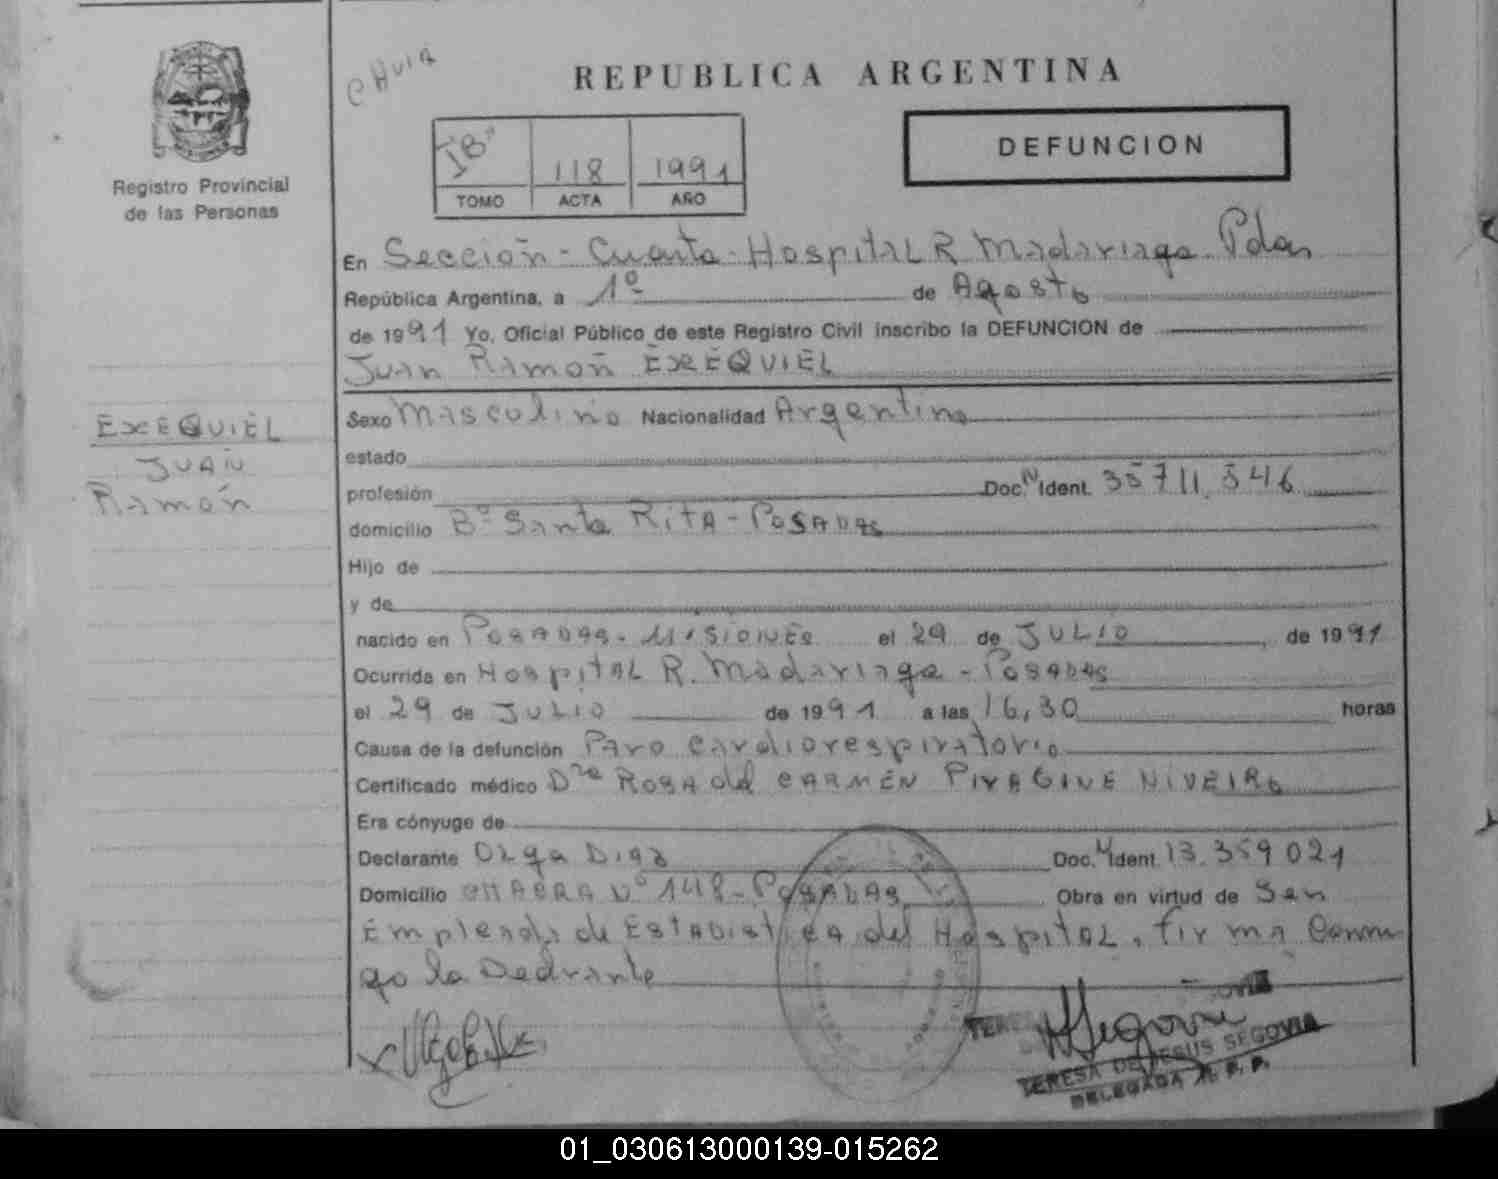 REPUBLICA ARGENTINA
DEFUNCION
118 1991
TOMO ACTA AÑO
Registro Provincial
de las Personas
En Sección - Cuarta - Hospital R. Madariaga. Pdas
República Argentina, a 1º de Agosto
de 1991 Yo, Oficial Público de este Registro Civil inscribo la DEFUNCION de
Juan Ramón EXEQUIEL
EXEQUIEL
JUAN
Ramón
Sexo Masculino Nacionalidad Argentina
estado
profesión Doc. N Ident. 35711.546
domicilio Bº Santa RitA - POSADAS
Hijo de
y de
nacido en POSADAS - MISIONES el 29 de JULIO de 1991
Ocurrida en HospitAL R. Madariaga - POSADAS
el 29 de JULIO de 1991 a las 16,30 horas
Causa de la defunción Paro cardiorespiratorio
Certificado médico Dra ROSA del CARMEN PIRAGINE NIVEIRO
Era cónyuge de
Declarante Olga Diaz Doc. N Ident. 13.359.021
Domicilio CHACRA Nº 148 - POSADAS Obra en virtud de Ser
Empleada de EStADistica del HospitAL, firma Conmi
go la
TERESA DE JESUS SEGOVIA
DELEGADA R. P. P.
01_030613000139-015262